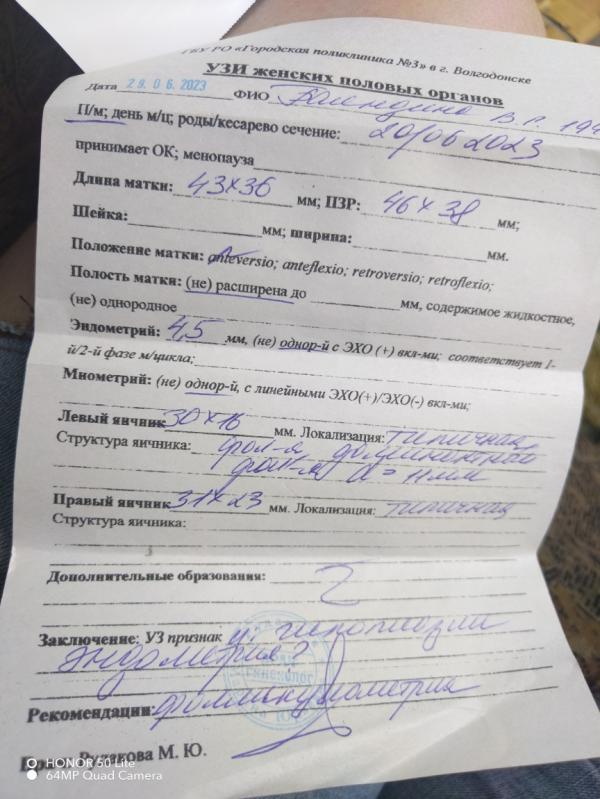 ГБУ РО «Городская поликлиника №3» в г. Волгодонске
УЗИ женских половых органов
Дата 29.06.2023 ФИО В. Г. 199
П/м; день м/ц; роды/кесарево сечение: 20/06 2023
принимает ОК; менопауза
Длина матки: 43×36 мм; ПЗР: 46×38 мм;
Шейка: мм; ширина: мм.
Положение матки: anteversio; anteflexio; retroversio; retroflexio;
Полость матки: (не) расширена до мм, содержимое жидкостное,
(не) однородное
Эндометрий: 4,5 мм, (не) однор-й с ЭХО (+) вкл-ми; соответствует 1-
й/2-й фазе м/цикла;
Миометрий: (не) однор-й, с линейными ЭХО(+)/ЭХО(-) вкл-ми;
Левый яичник 30×16 мм. Локализация: типичная
Структура яичника: фол-я доминантный
фол-л d = 11мм
Правый яичник 31×23 мм. Локализация: типичная
Структура яичника:
Дополнительные образования:
Заключение: УЗ признак гипоплазии
эндометрия?
Рекомендации: фолликулометрия
Рудакова М. Ю.
HONOR 50 Lite
64MP Quad Camera